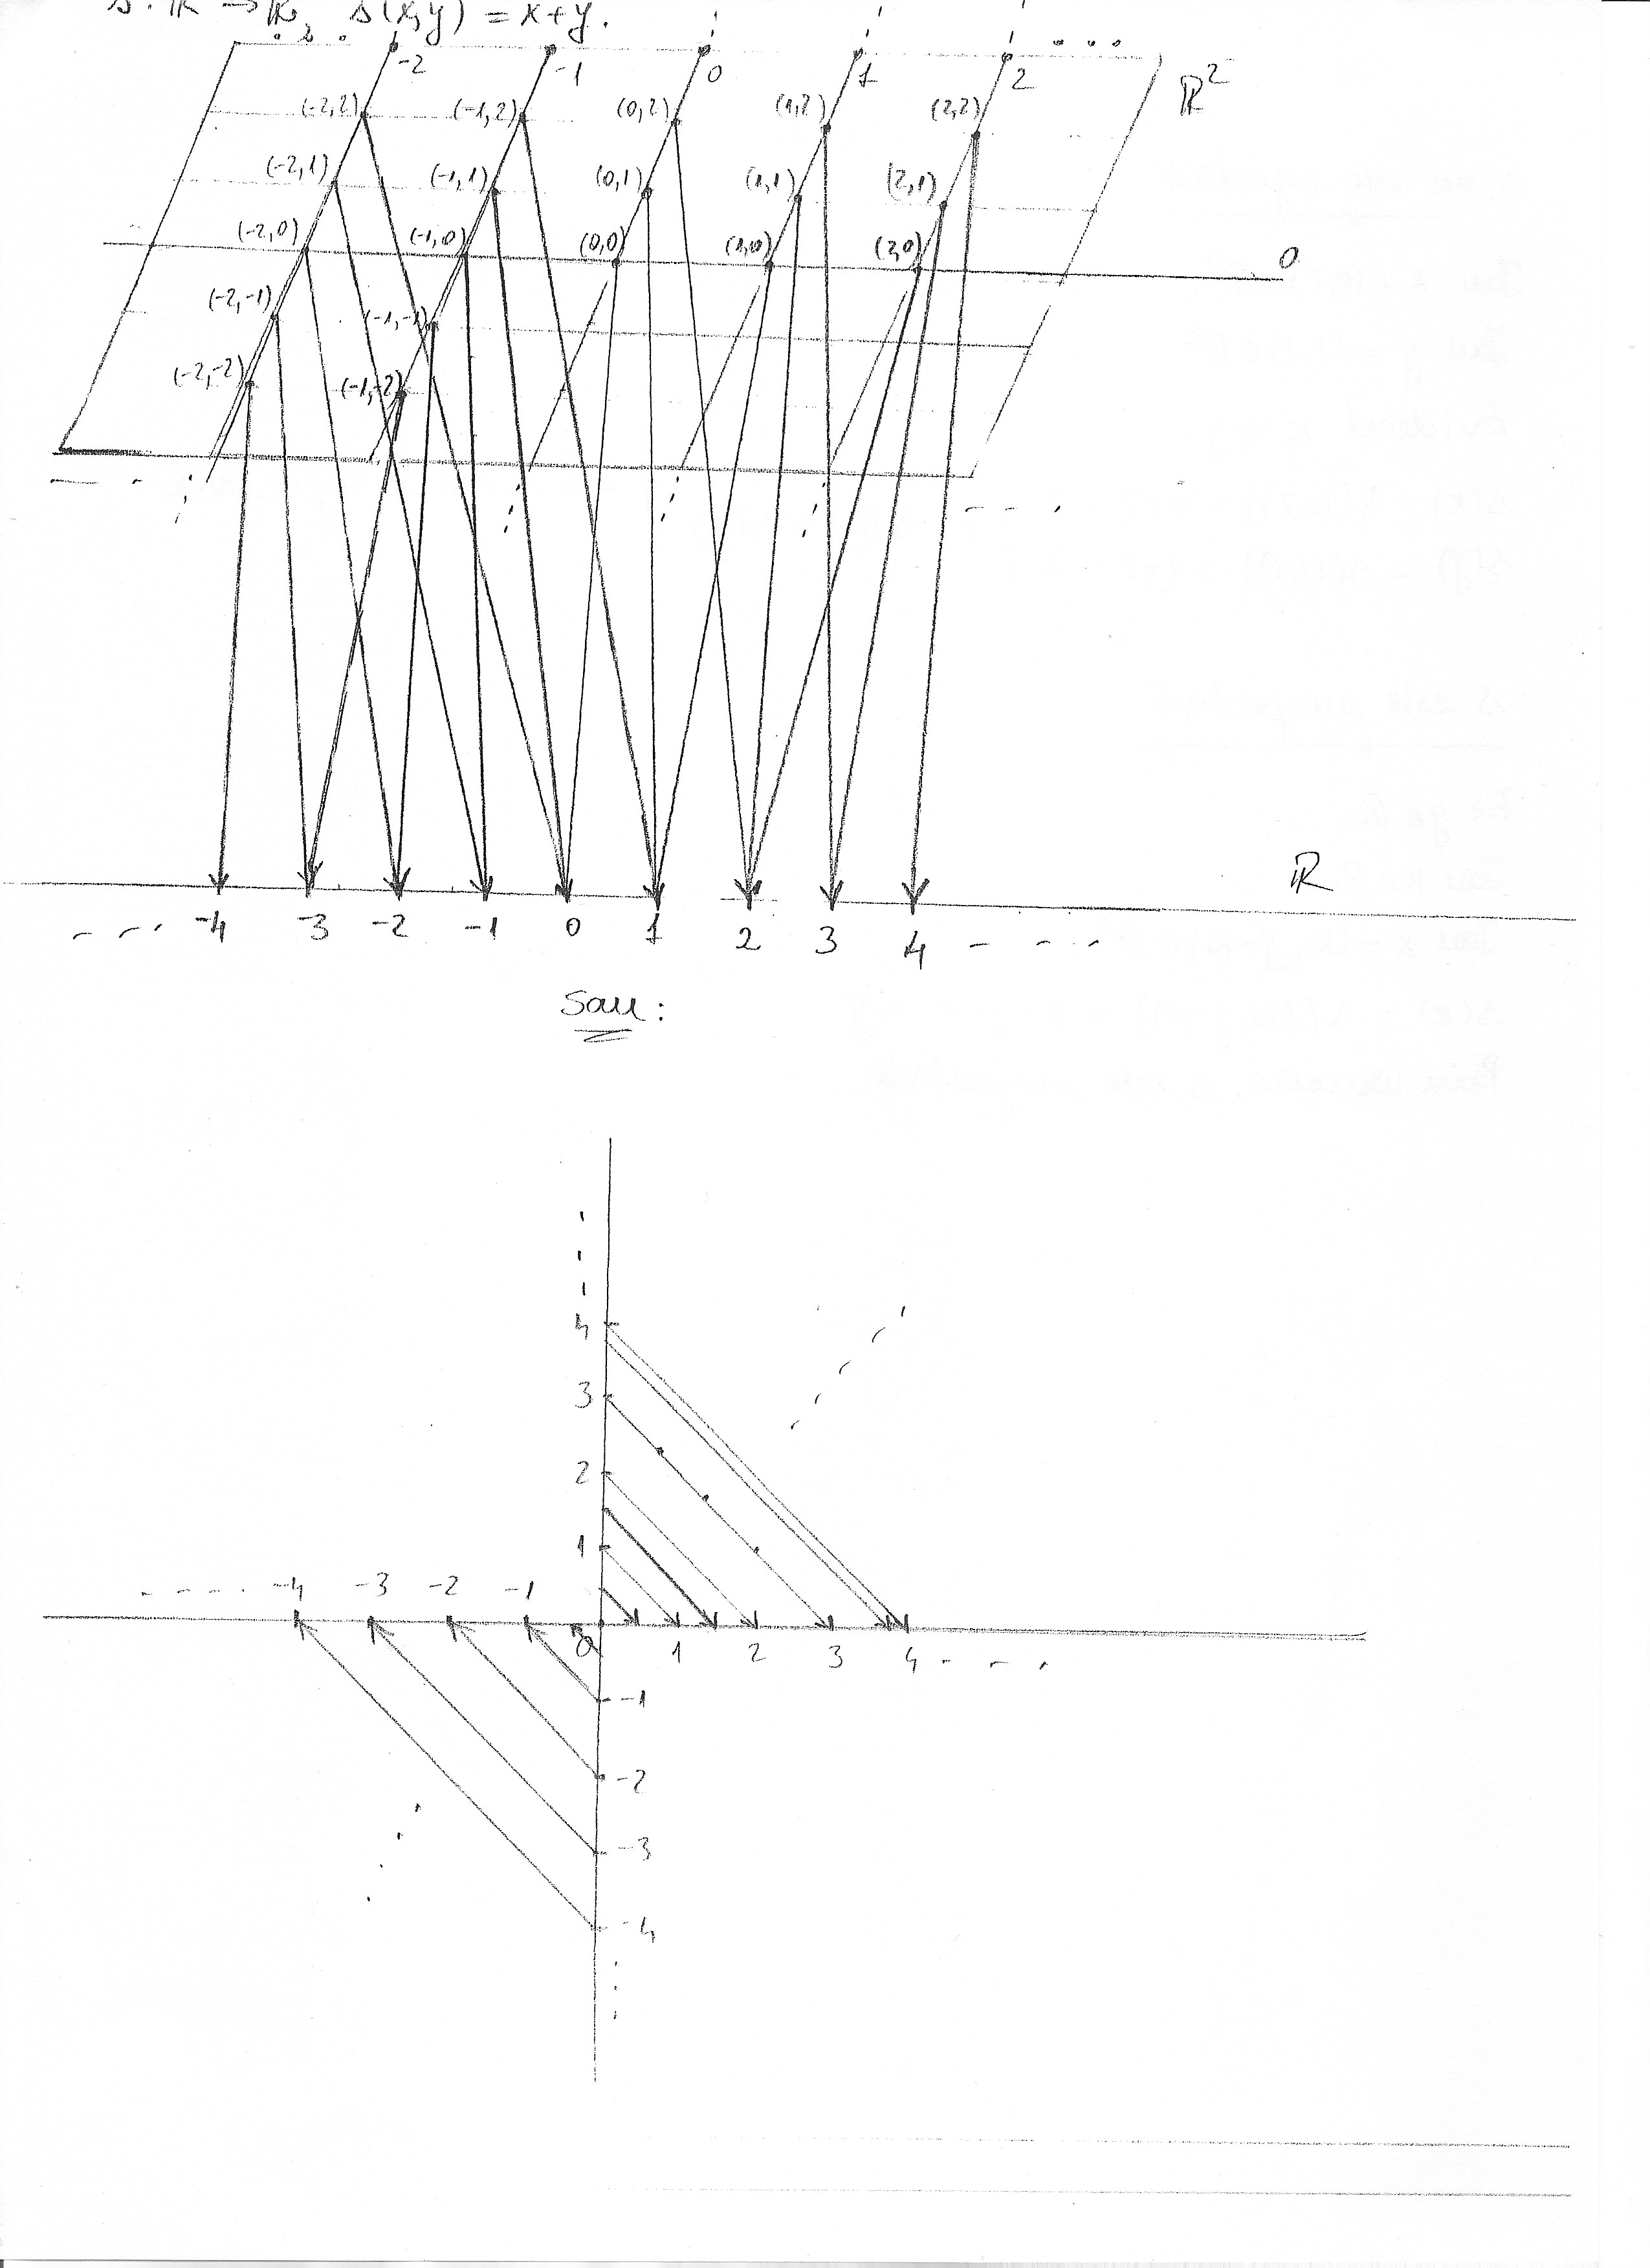 s: ℝ → ℝ, s(x,y) = x+y.
-2 -1 0 1 2
ℝ²
(-2,2) (-1,2) (0,2) (1,2) (2,2)
(-2,1) (-1,1) (0,1) (1,1) (2,1)
(-2,0) (-1,0) (0,0) (1,0) (2,0) 0
(-2,-1) (-1,-1)
(-2,-2) (-1,-2)
ℝ
-4 -3 -2 -1 0 1 2 3 4
Sau:
4
3
2
1
-4 -3 -2 -1
0 1 2 3 4
-1
-2
-3
-4